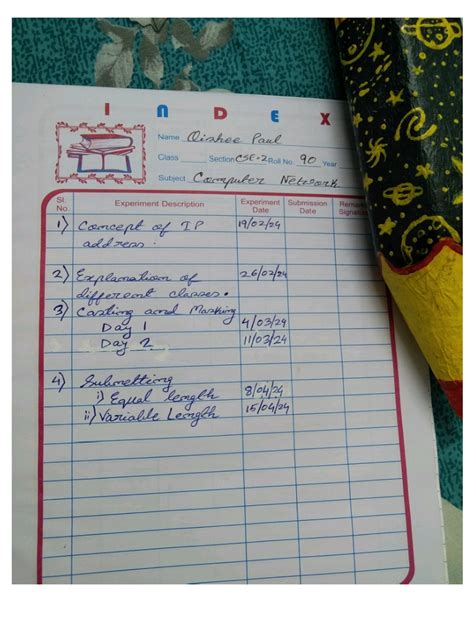 INDEX
Name Oishee Paul
Class Section CSE-2 Roll No. 90 Year
Subject Computer Network
Sl. No. Experiment Description Experiment Date Submission Date Remark Signature
1) Concept of IP 19/02/24
address.
2) Explanation of 26/02/24
different classes.
3) Casting and Masking
Day 1 4/03/24
Day 2 11/03/24
4) Subnetting
i) Equal length 8/04/24
ii) Variable Length 15/04/24